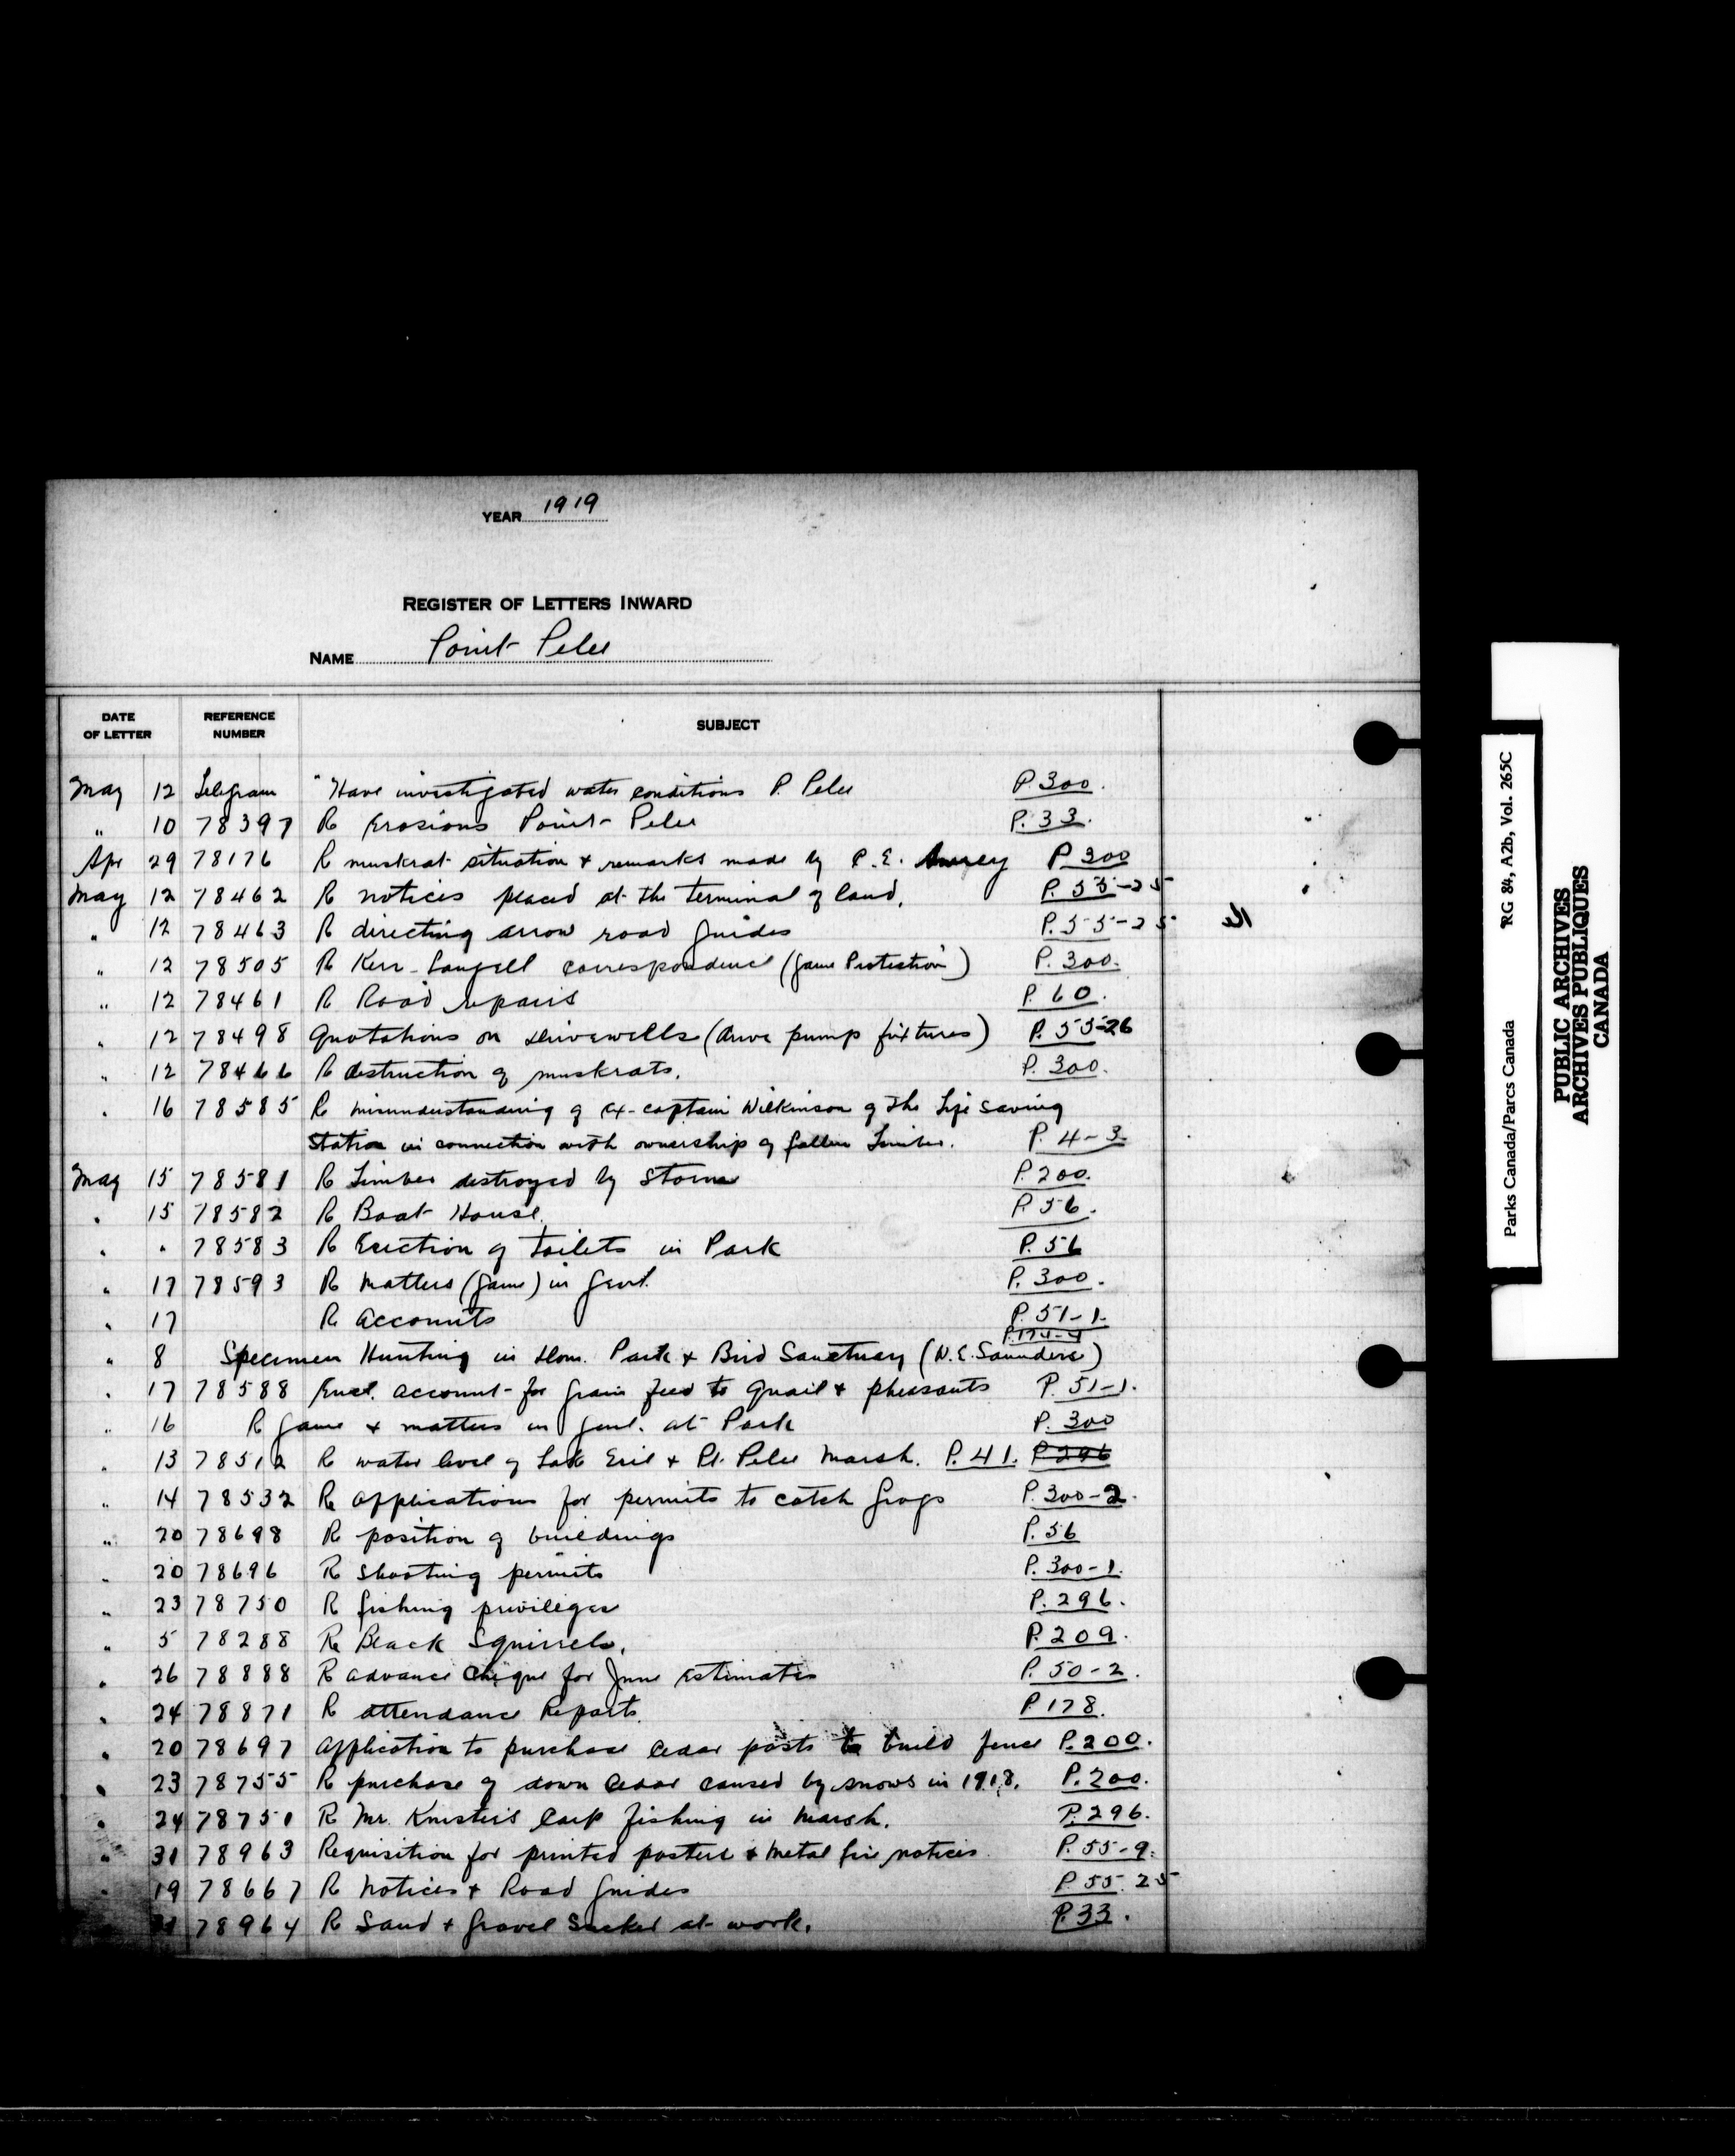 YEAR 1919
REGISTER OF LETTERS INWARD
NAME Point Pelee
DATE OF LETTER REFERENCE NUMBER SUBJECT
May 12 Telegram "Have investigated water conditions P. Pelee P 300.
" 10 78397 R Erosions Point Pelee P. 33.
Apr 29 78176 R muskrat situation + remarks made by P. E. P 300
May 12 78462 R notices placed at the terminal of land. P. 55-25
" 12 78463 R directing arrow road guides P. 55-25
" 12 78505 R Kerr- correspondence (Game Protection) P. 300.
" 12 78461 R Road repairs P. 60.
" 12 78498 Quotations on drivewells (drive pump fixtures) P. 55-26
" 12 78466 R destruction of muskrats. P. 300.
" 16 78585 R misunderstanding of ex-captain Wilkinson of the Life Saving
Station in connection with ownership of fallen Timber. P. 4-3.
May 15 78581 R Timber destroyed by Storm P. 200.
" 15 78582 R Boat House. P 56.
" " 78583 R Erection of toilets in Park P. 56
" 17 78593 R Matters (game) in Genl. P. 300.
" 17 R Accounts P. 51-1.
P. 174-4
" 8 Specimen Hunting in Dom. Park + Bird Sanctuary (W.E. Saunders)
" 17 78588 Encl. account for grain feed to Quail + pheasants P. 51-1.
" 16 R game + matters in genl. at Park P. 300
" 13 78512 R water level of Lake Erie + Pt. Pelee Marsh. P. 41. P 296
" 14 78532 Re applications for permits to catch frogs P. 300-2.
" 20 78698 R position of buildings P. 56
" 20 78696 R Shooting permits P. 300-1.
" 23 78750 R fishing privileges P. 296.
" 5 78288 Re Black Squirrels. P. 209.
" 26 78888 R advance cheque for June Estimates P. 50-2.
" 24 78871 R attendance Reports. P 178.
" 20 78697 Application to purchase cedar posts to build fence P. 200.
" 23 78755 R purchase of down Cedar caused by snows in 1918. P. 200.
" 24 78751 R Mr. Knister's Carp fishing in Marsh. P. 296.
" 31 78963 Requisition for printed posters + Metal fire notices P. 55-9.
" 19 78667 R Notices + Road Guides P 55. 25
31 78964 R Sand + Gravel Sucker at work. P. 33.
Parks Canada/Parcs Canada RG 84, A2b, Vol. 265C
PUBLIC ARCHIVES
ARCHIVES PUBLIQUES
CANADA